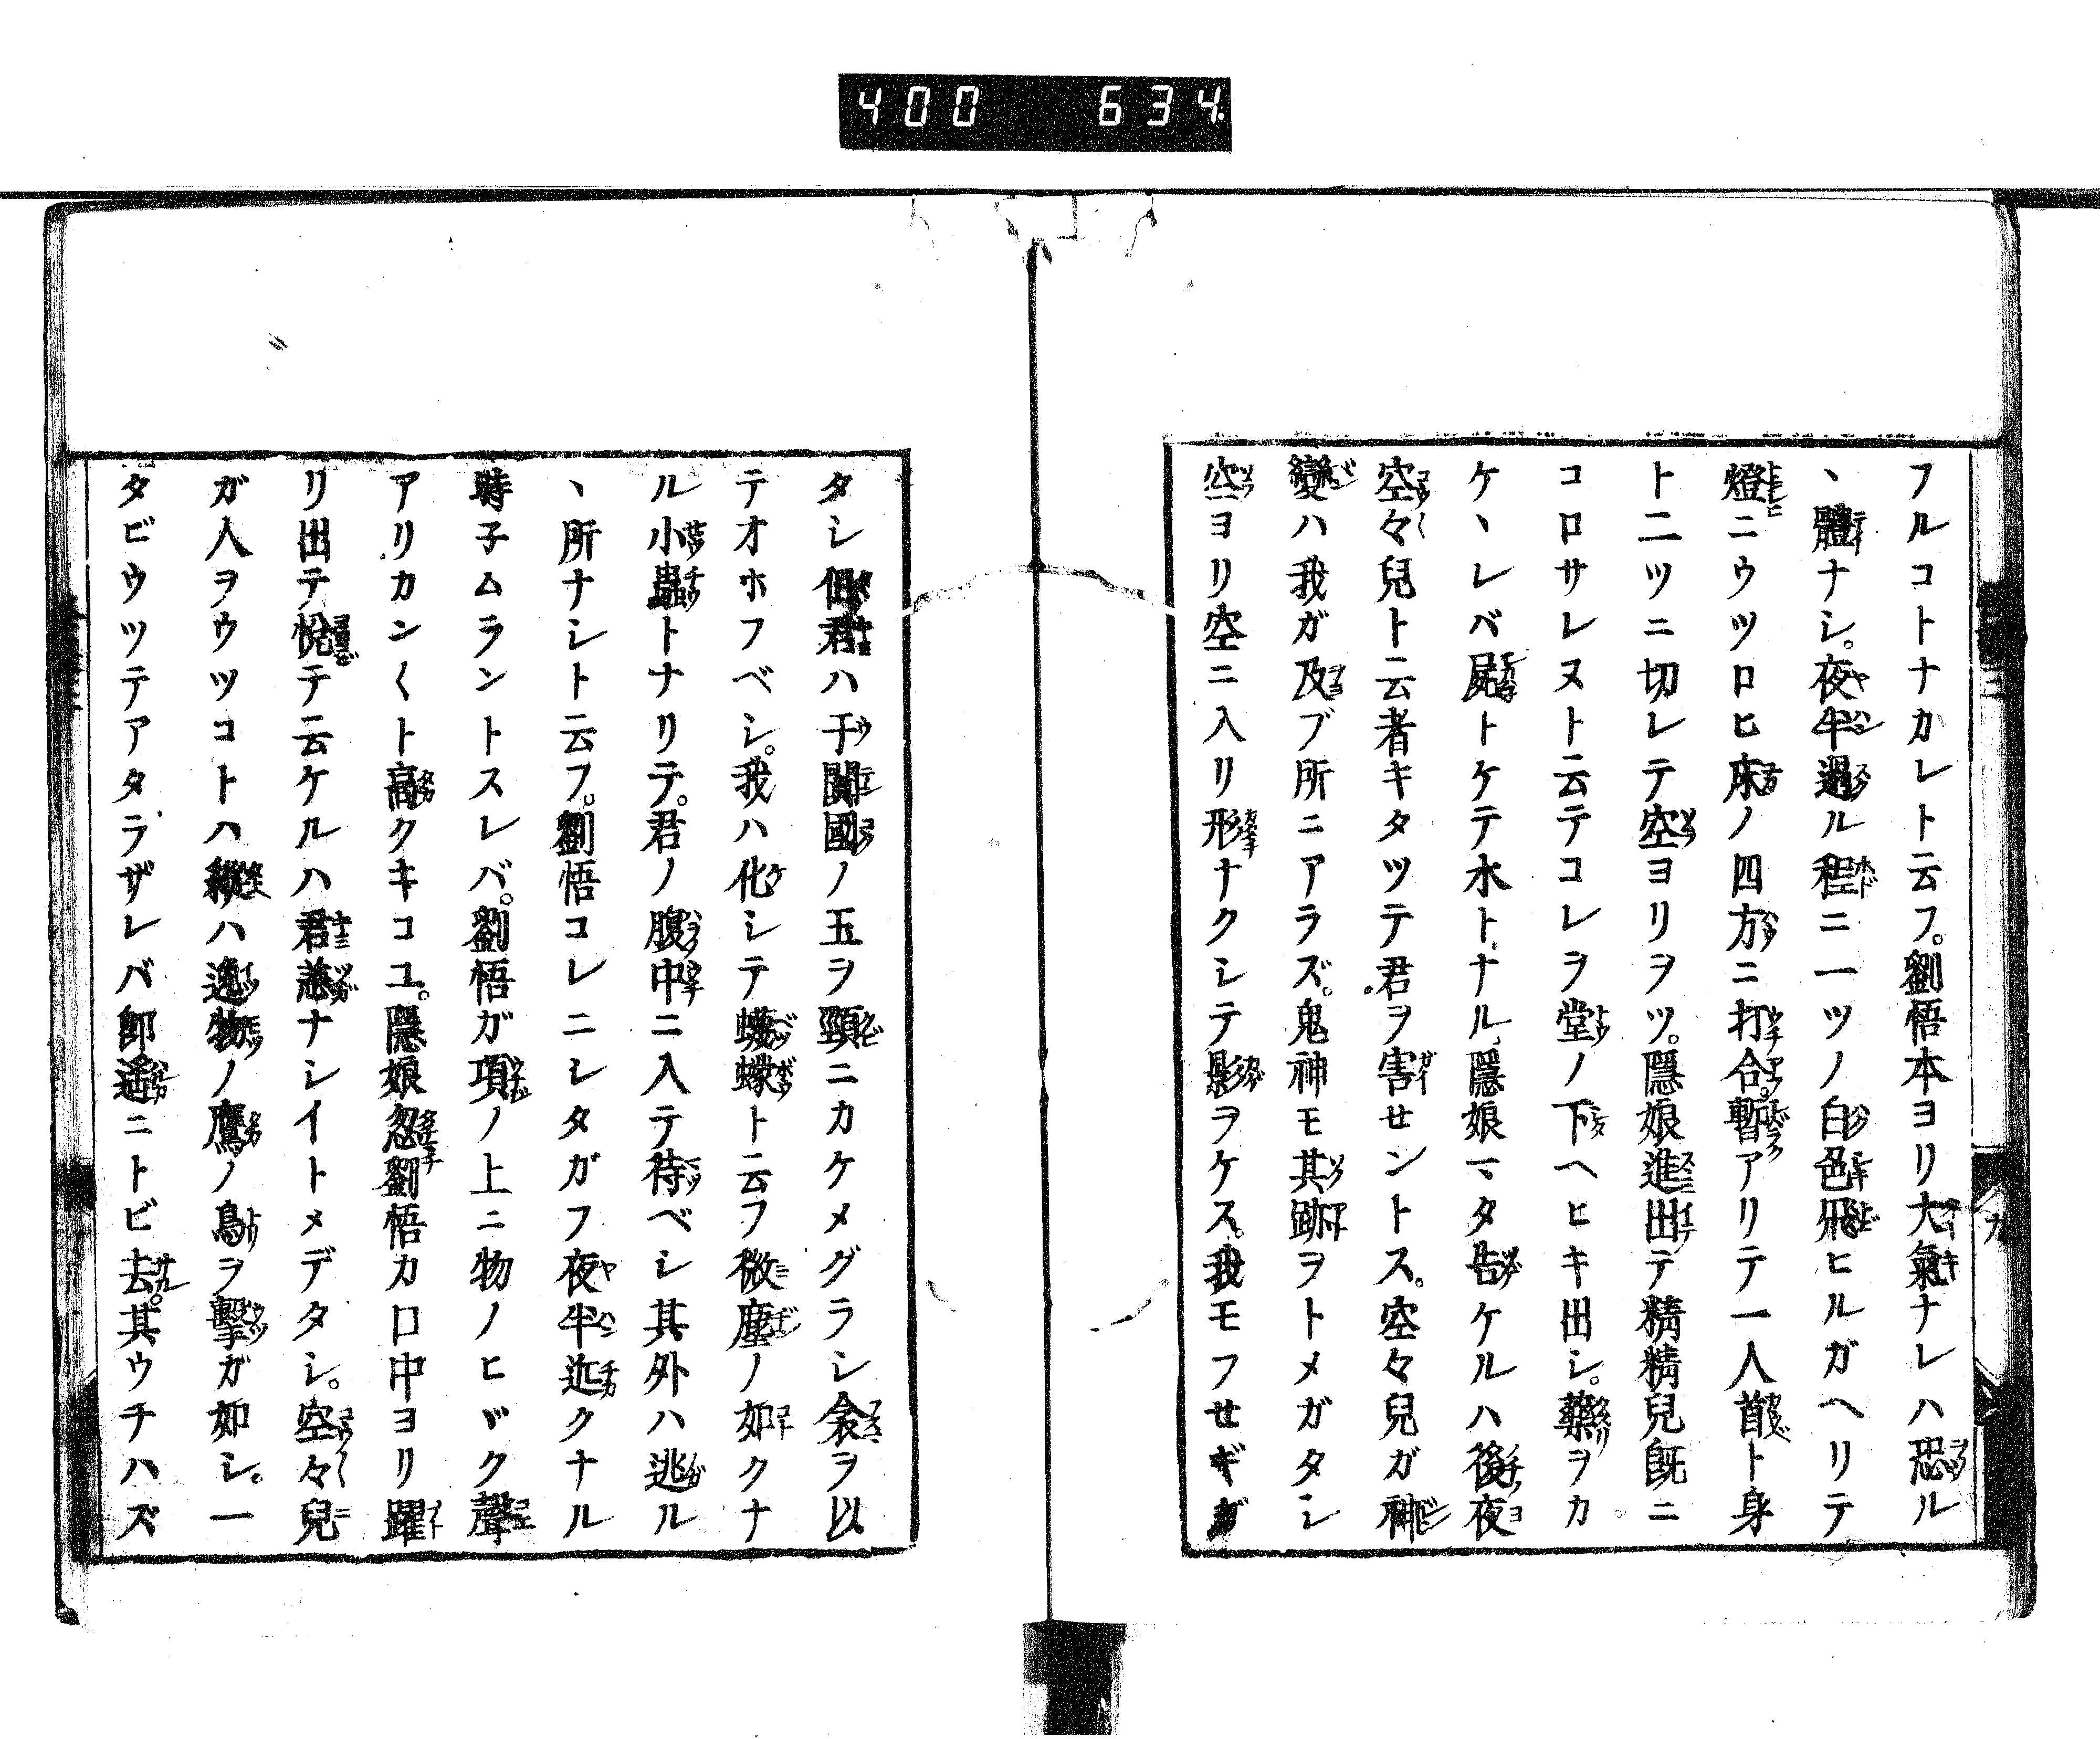 400 634
フルコトナカレト云フ。劉悟本ヨリ大氣ナレハ恐ル
丶體ナシ。夜半過ル程ニ一ツノ白色飛ヒルガヘリテ
燈ニウツロヒ床ノ四方ニ打合。暫アリテ一人首ト身
ト二ツニ切レテ空ヨリヲツ。隱娘進出テ精精兒既ニ
コロサレヌト云テコレヲ堂ノ下ヘヒキ出シ。藥ヲカ
ケ丶レベ屍トケテ水トナル。隱娘マタ告ケルハ後夜
空々兒ト云者キタツテ君ヲ害セントス。空々兒ガ神
變ハ我ガ及ブ所ニアラズ。鬼神モ其跡ヲトメガタシ
空ヨリ空ニ入リ形ナクシテ影ヲケス。我モフセギガ
タシ但君ハ于闐國ノ玉ヲ頸ニカケメグラシ衾ヲ以
テオホフベシ。我ハ化シテ蠛蠓ト云フ微塵ノ如クナ
ル小蟲トナリテ。君ノ腹中ニ入テ待ベシ其外ハ逃ル
丶所ナシト云フ。劉悟コレニシタガフ夜半近クナル
時子ムラントスレバ。劉悟ガ項ノ上ニ物ノヒヾク聲
アリカン〱ト高クキコユ。隱娘忽劉悟カ口中ヨリ躍
リ出テ悦テ云ケルハ君恙ナシイトメデタシ。空々兒
ガ人ヲウツコトハ縱ハ逸物ノ鷹ノ鳥ヲ擊ガ如シ。一
タビウツテアタラザレバ郎遙ニトビ去。其ウチハズ